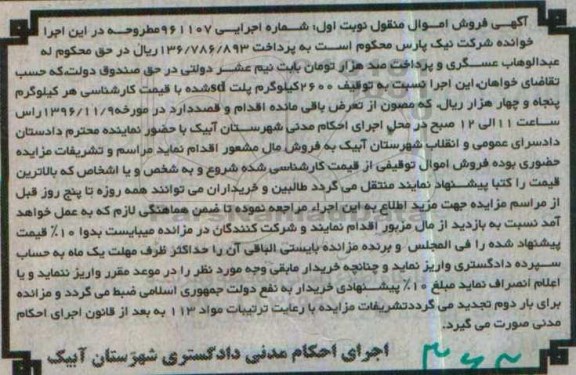 آگهی فروش اموال منقول نوبت اول: شماره اجرایی ۹۶۱۱۰۷مطروحه در این اجرا
خوانده شرکت نیک پارس محکوم است به پرداخت ۱۳۶/۷۸۶/۸۹۳ریال در حق محکوم له
عبدالوهاب عسگری و پرداخت صد هزار تومان بابت نیم عشر دولتی در حق صندوق دولت،که حسب
تقاضای خواهان،این اجرا نسبت به توقیف ۲۶۰۰کیلوگرم پلت sdشده با قیمت کارشناسی هر کیلوگرم
پنجاه و چهار هزار ریال، که مصون از تعرض باقی مانده اقدام و قصددارد در مورخه۱۳۹۶/۱۱/۹راس
ساعت ۱۱الی ۱۲ صبح در محل اجرای احکام مدنی شهرستان آبیک با حضور نماینده محترم دادستان
دادسرای عمومی و انقلاب شهرستان آبیک به فروش مال مشعور اقدام نماید مراسم و تشریفات مزایده
حضوری بوده فروش اموال توقیفی از قیمت کارشناسی شده شروع و به شخص و یا اشخاص که بالاترین
قیمت را کتبا پیشنهاد نمایند منتقل می گردد طالبین و خریداران می توانند همه روزه تا پنج روز قبل
از مراسم مزایده جهت مزید اطلاع به این اجراء مراجعه نموده تا ضمن هماهنگی لازم که به عمل خواهد
آمد نسبت به بازدید از مال مزبور اقدام نمایند و شرکت کنندگان در مزایده میبایست بدوا ۱۰٪ قیمت
پیشنهاد شده را فی المجلس و برنده مزایده بایستی الباقی آن را حداکثر ظرف مهلت یک ماه به حساب
سپرده دادگستری واریز نماید و چنانچه خریدار مابقی وجه مورد نظر را در موعد مقرر واریز ننماید و یا
اعلام انصراف نماید مبلغ ۱۰٪ پیشنهادی خریدار به نفع دولت جمهوری اسلامی ضبط می گردد و مزایده
برای بار دوم تجدید می گرددتشریفات مزایده با رعایت ترتیبات مواد ۱۱۳ به بعد از قانون اجرای احکام
مدنی صورت می گیرد.
اجرای احکام مدنی دادگستری شهرستان آبیک